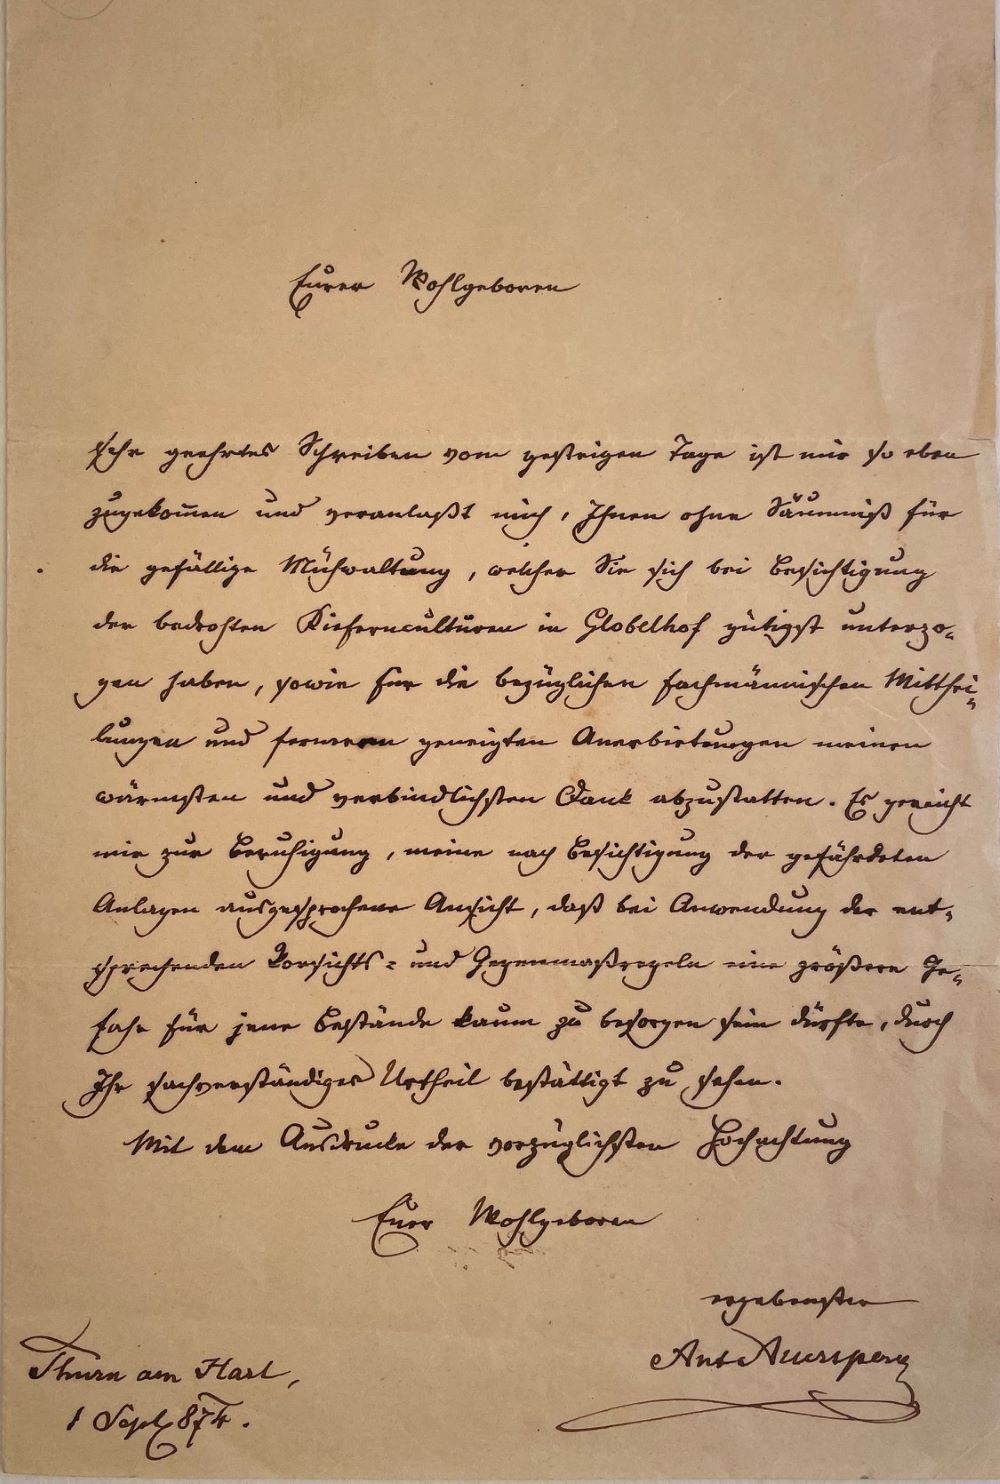 Eurer Wohlgeboren
sehr geehrtes Schreiben vom gestrigen Tage ist mir so eben
zugekom̅en und veranlaßt mich, Ihnen ohne Säumniß für
die gefällige Mühwaltung, welcher Sie sich bei Besichtigung
der bedrohten Kiefernculturen in Globelhof gütigst unterzo-
gen haben, sowie für die bezüglichen fachmännischen Mitthei-
lungen und ferneren geneigten Anerbietungen meinen
wärmsten und verbindlichsten Dank abzustatten. Es gereicht
mir zur Beruhigung, meine nach Besichtigung der gefährdeten
Anlagen ausgesprochene Ansicht, daß bei Anwendung der ent-
sprechenden Vorsichts- und Gegenmaßregeln eine größere Ge-
fahr für jene Bestände kaum zu besorgen sein dürfte, durch
Ihr sachverständiges Urtheil bestättigt zu sehen.
Mit dem Ausdrucke der vorzüglichsten Hochachtung
Euer Wohlgeboren
ergebenster
Ant Auersperg
Thurn am Hart,
1 Sept 874.